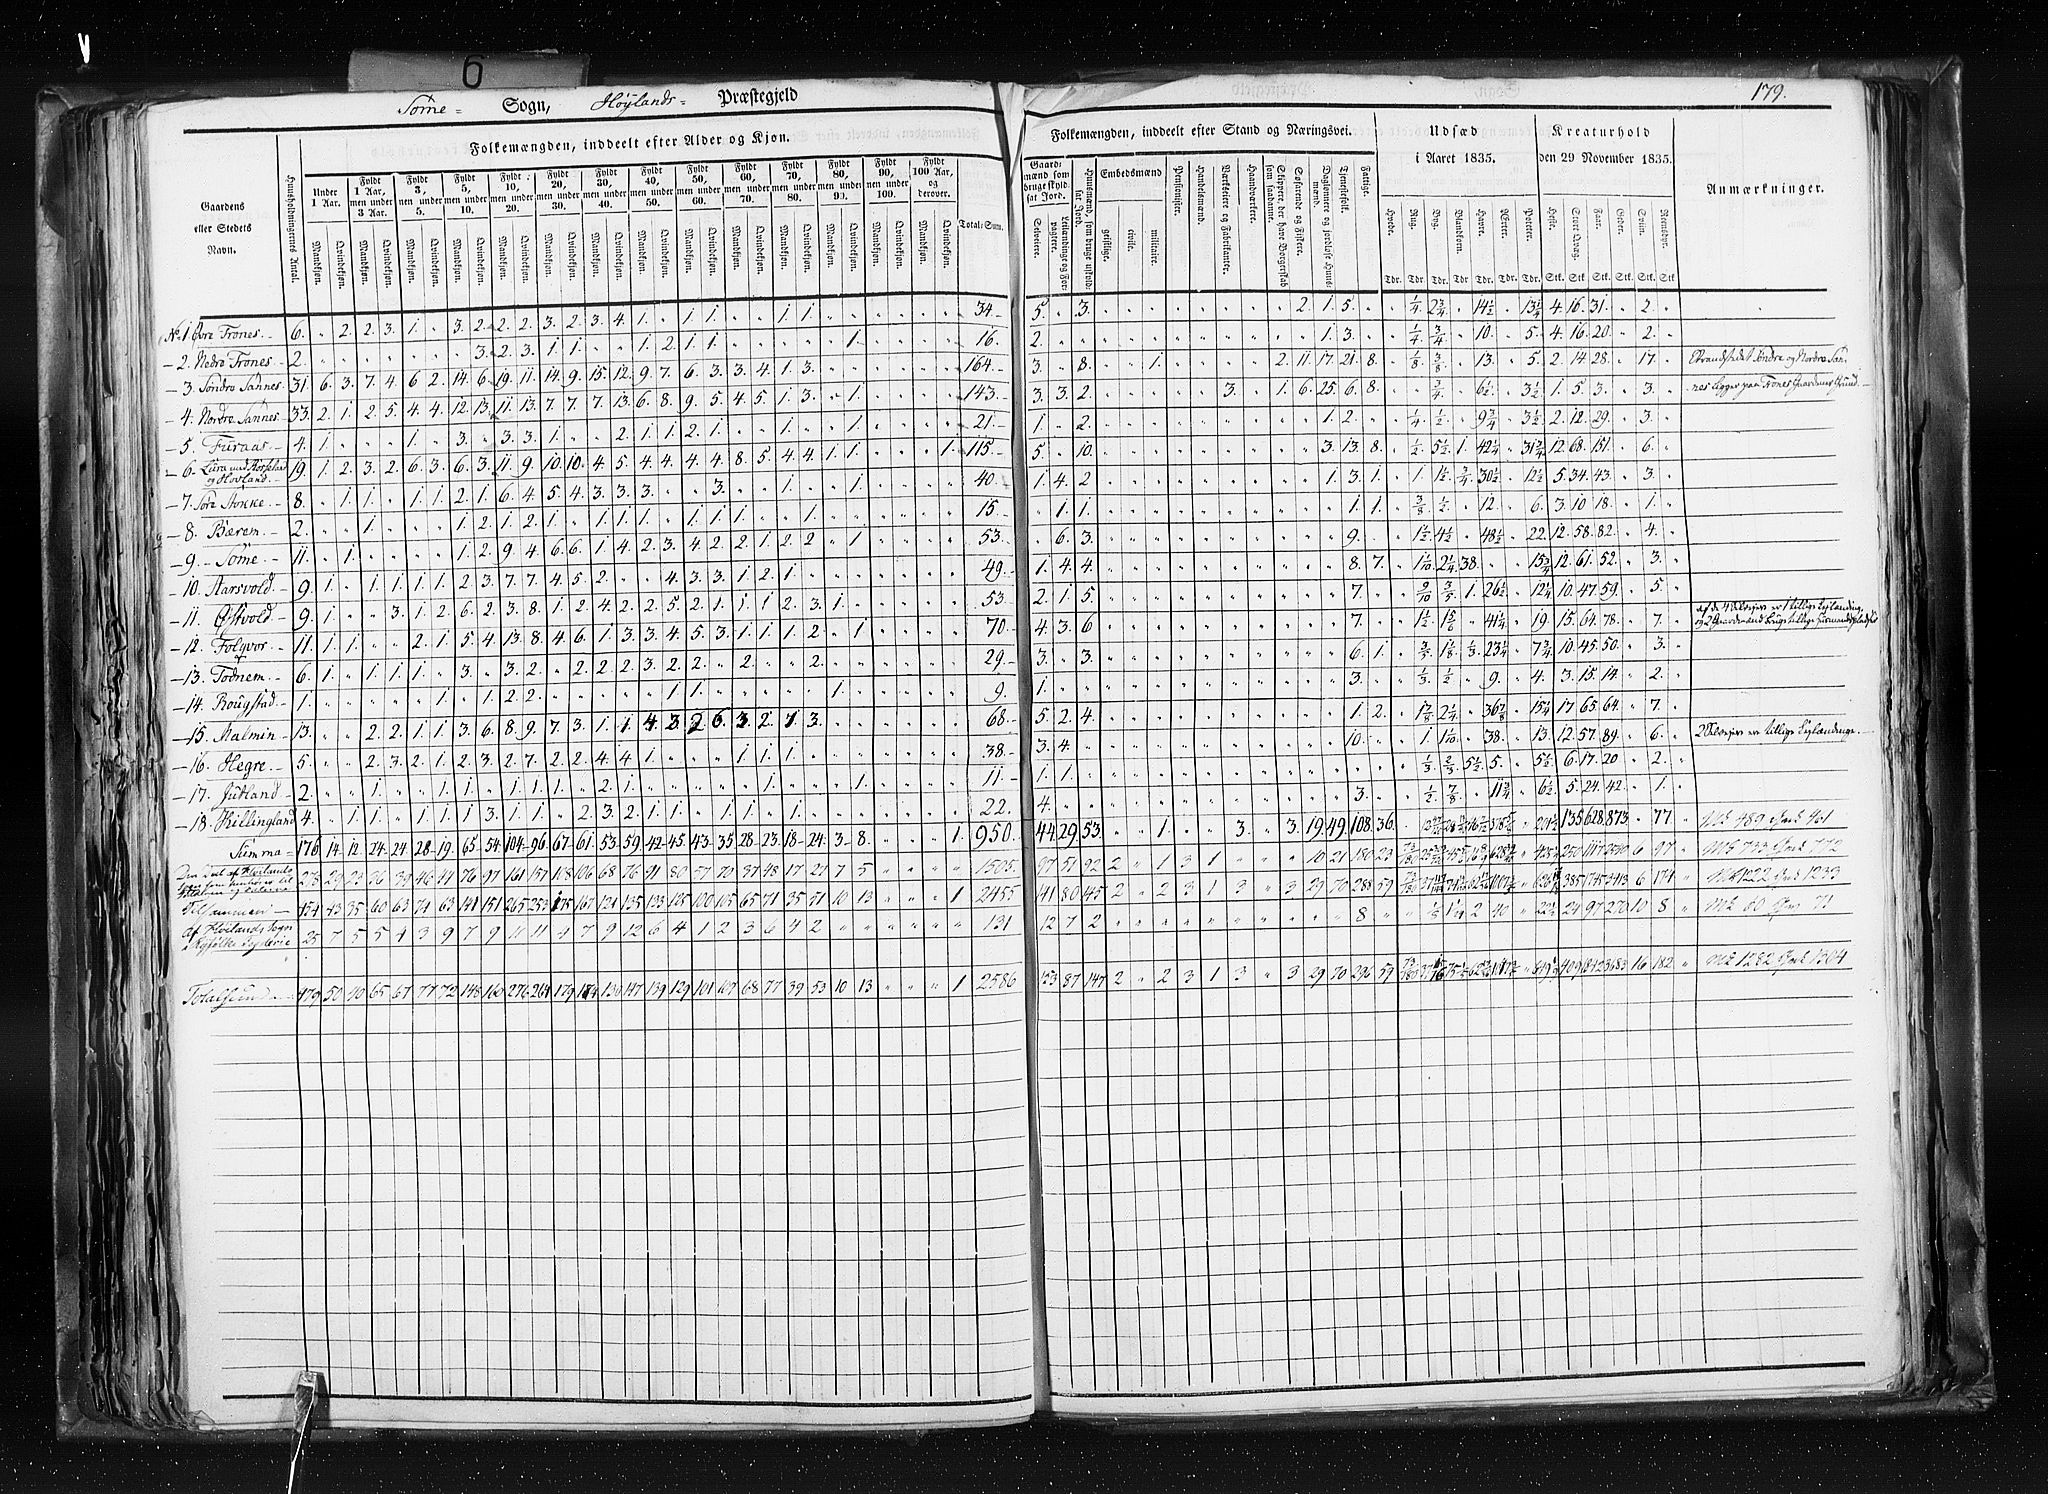 6
179.
Somè = Sogn, Høylands = Præstegjeld
Folkemængden, inddeelt efter Alder og Kjøn.
Folkemængden, inddeelt efter Stand og Næringsvei.
Udsæd i Aaret 1835.
Kreaturhold den 29 November 1835.
Anmærkninger.
Gaardens eller Stedets Navn.
Huusholdningernes Antal.
Under 1 Aar.
Fyldt 1 Aar, men under 3 Aar.
Fyldt 3, men under 5.
Fyldt 5, men under 10.
Fyldt 10, men under 20.
Fyldt 20, men under 30.
Fyldt 30, men under 40.
Fyldt 40, men under 50.
Fyldt 50, men under 60.
Fyldt 60, men under 70.
Fyldt 70, men under 80.
Fyldt 80, men under 90.
Fyldt 90, men under 100.
Fyldt 100 Aar, og derover.
Mandkjøn. Qvindekjøn.
Total-Sum.
Gaardmænd som bruge skyldsat Jord.
Selveiere. Leilændinge og Forpagtere.
Huusmænd, som bruge uskyldsat Jord.
Embedsmænd
geistlige. civile. militaire.
Pensionister.
Handelsmænd.
Værkseiere og Fabrikanter.
Haandværkere.
Skippere, der have Borgerskab som saadanne.
Søfarende og Fiskere.
Daglønnere og jordløse Huusmænd.
Tjenestefolk.
Fattige.
Hvede. Rug. Byg. Blandkorn. Havre. Ærter. Poteter.
Heste. Stort Qvæg. Faar. Geder. Sviin. Rensdyr.
Tdr. Tdr. Tdr. Tdr Tdr. Tdr. Tdr. Stk. Stk Stk. Stk. Stk. Stk
No 1. Øvre Trones 6. " 2. 2. 3. 1. " 3. 2. 2. 2. 3. 2. 3. 4. 1. " 1. 1. " " 1. 1. 34.
5. " 3. 2. 1. 5. 1/4 2 3/4 14 1/2 13 1/4 4. 16. 31. 2.
2. Nedre Trones 2. 3. 2. 3. 1. 1. 1. 2. 1. 1. 1. 16.
2. 1. 3. 1/4 3/4 10. 5. 4. 16. 20. 2.
3. Søndre Sannes 31. 6. 3. 7. 4. 6. 2. 14. 6. 19. 11. 14. 9. 15. 12. 9. 7. 6. 3. 3. 4. 1. 3. 164.
3. 8. 1. 2. 11. 17. 21. 8. 1/8 3/8 13. 5. 2. 14. 28. 17.
4. Nordre Sannes 33. 2. 1. 2. 5. 4. 4. 12. 13. 11. 13. 7. 7. 7. 13. 6. 8. 9. 5. 4. 5. 1. 3. " 1. 143.
3. 3. 2. 3. 1. 6. 25. 6. 8. 3/4 6 1/2 3 1/2 1. 5. 3. 3.
5. Furaas 4. 1. 1. 3. 3. 3. 1. 2. 1. 1. 2. 1. 1. 1. 21.
1. 2. 1. 2. 1/4 1/2 9 3/4 3 1/2 2. 12. 29. 3.
6. Lura med Rosseland og Hovland 19. 1. 2. 3. 2. 6. 3. 6. 3. 11. 9. 10. 10. 4. 5. 4. 4. 4. 4. 8. 5. 4. 4. 1. 1. 1. 115.
5. 10. 3. 13. 8. 1/2 5 1/2 1. 42 1/4 31 3/4 12. 68. 151. 6.
7. Søre Stokke 8. 1. 1. 1. 1. 2. 1. 6. 4. 5. 4. 3. 3. 3. 3. 1. 1. 40.
1. 4. 2 1. 3. 1. 1. 1 1/2 3/4 30 1/2 12 1/2 5. 34. 43. 3.
8. Bærem 2. 1. 1. 2. 1. 2. 1. 1. 1. 1. 1. 1. 1. 1. 15.
1. 1. 1. 1. 3/8 1/2 12. 6. 3. 10. 18. 1.
9. Somè 11. 1. 1. 2. 9. 4. 6. 6. 1. 4. 2. 3. 4. 2. 2. 1. 2. 2. 1. 53.
6. 3. 9. 1 1/2 4 1/2 48 1/2 22. 12. 58. 82. 4.
10. Aarsvold 9. 1. 1. 1. 1. 1. 2. 3. 7. 7. 4. 5. 2. 4. 3. 3. 1. 2. 1. 49.
1. 4. 4. 8. 7. 1 1/10 2 1/4 38. 15 3/4 12. 61. 52. 3.
11. Østvold 9. 1. 3. 1. 2. 6. 2. 3. 8. 1. 2. 4. 2. 2. 5. 2. 1. 1. 1. 2. 3. 1. 53.
2. 1. 5. 7. 9/10 3/5 1. 26 1/4 12 1/4 10. 47. 59. 5.
12. Folqvor 11. 1. 1. 2. 1. 5. 4. 13. 8. 4. 6. 1. 3. 3. 4. 5. 3. 1. 1. 1. 2. 1. 70.
4. 3. 6 7. 1 1/2 1 5/6 41 1/4 19 15. 64. 78. 7.
13. Todnem 6. 1. 1. 1. 1. 3. 3. 2. 2. 2. 2. 3. 2. 2. 2. 2. 29.
3. 3. 6. 1. 3/5 1 1/8 1/3 23 1/4 7 3/4 10. 45. 50. 3.
14. Rougstad 1. 1. 1. 2. 2. 1. 1. 1. 9.
1. 3. 1/3 1/2 9. 4. 3. 15. 14 2.
15. Malmin 13. 2. 2. 1. 1. 3. 6. 8. 9. 7. 3. 1. 1. 4. 3. 2. 6. 3. 2. 1. 3. 68.
5. 2. 4. 1. 2. 1 7/8 2 1/4 36 7/8 15 1/4 17 65 64. 7.
16. Hegre 5. 2. 3. 2. 1. 2. 3. 2. 7. 2. 2. 4. 4. 1. 1. 1. 1. 38.
3. 4. 10. 1. 1 1/10 38. 13. 12. 57. 89. 6.
17. Jutland 2. 1. 1. 1. 1. 1. 1. 2. 1. 1. 1. 11.
1. 1. 1/3 2/3 5 1/2 5. 5 1/2 6. 17. 20 2.
18. Killingland 4. 1. 1. 1. 1. 1. 3. 1. 1. 2. 3. 2. 1. 1. 1. 1. 1. 22.
4. 3. 1/2 7/8 11 3/4 6 1/2 5. 24. 42. 1.
Summa 176 14. 12. 24. 24. 28. 19. 65. 54. 104. 96. 67. 61. 53. 59. 42. 45. 43. 35. 28. 23. 18. 24. 3. 8. 1. 950.
44. 29. 53. 1. 3. 3. 19. 49. 108. 36. 135. 628. 873. 77. Mk 489 Qvk 461
278 29 23 36 39 46 44 76 97 161 157 108 106 68 76 91 80 57 70 37 48 17 27 7 5 1505.
97 51 92 2 1 3 1 10 21 180 23 250 1117 2540 6 97 Mk 733 Qvk 772
Tilsammen 454 43 35 60 63 74 63 141 151 265 253 175 167 121 135 133 125 100 105 65 71 35 51 10 13 1 2455
141 80 145 2 2 3 1 3 3 29 70 288 59 385 1745 3413 6 174 Mk 1222 Qvk 1233
Af Høilands Sogn i Ryfylke Fogderie 25 7 5 5 4 3 9 7 9 11 11 4 7 9 12 6 4 1 2 3 6 4 2 131
12 7 2 8 1/5 2 40 22 1/2 24 97 270 10 8 Mk 60 Qvk 71
Totalsum 479 50 40 65 67 77 72 148 160 276 264 179 174 130 147 139 129 101 107 68 77 39 53 10 13 1 2586
153 87 147 2 2 3 1 3 3 29 70 296 59 409 1842 3683 16 182 Mk 1282 Qvk 1304
Strandstedet Søndre og Nordre Sannes ligger paa Trones Gaardenes Grund
2 Selveiere er tillige Leilændinge.